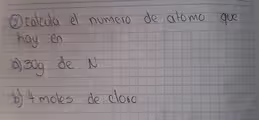 ② calcula el numero de atomo que
hay en
a) 30g de N
b) 4 moles de cloro